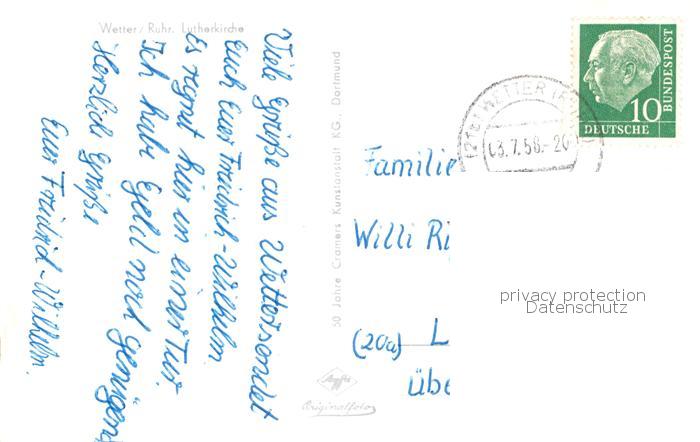 Wetter/Ruhr. Lutherkirche
Viele Grüße aus Wetter sendet
Euch Euer Friedrich-Wilhelm.
Es regnet hier in einer Tur.
Ich habe Geld noch genügend
Herzliche Grüße
Euer Friedrich-Wilhelm.
50 Jahre Cramers Kunstanstalt KG, Dortmund
Agfa
Originalfoto
WETTER (R
03.7.58.-20
10
DEUTSCHE
BUNDESPOST
Familie
Willi Ri
(20a) L
übe
privacy protection
Datenschutz